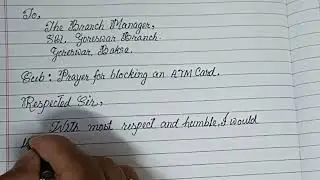 To,
The Branch Manager,
SBI, Goreswar Branch
Goreswar, Baksa.
Sub: Prayer for blocking an ATM Card.
Respected Sir,
With most respect and humble, I would